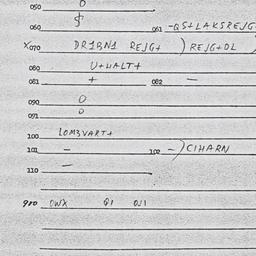 050 0
060 $ 061 -QS+LAKSREJG-
X070 DR1BN1 REJG+ ) REJG+DL )
080 U+HALT+
081 + 082 -
090 0
091 0
100 LOM3VART+
101 - 102 -) CIHARN
110 -
980 OWX Q1 OJ1